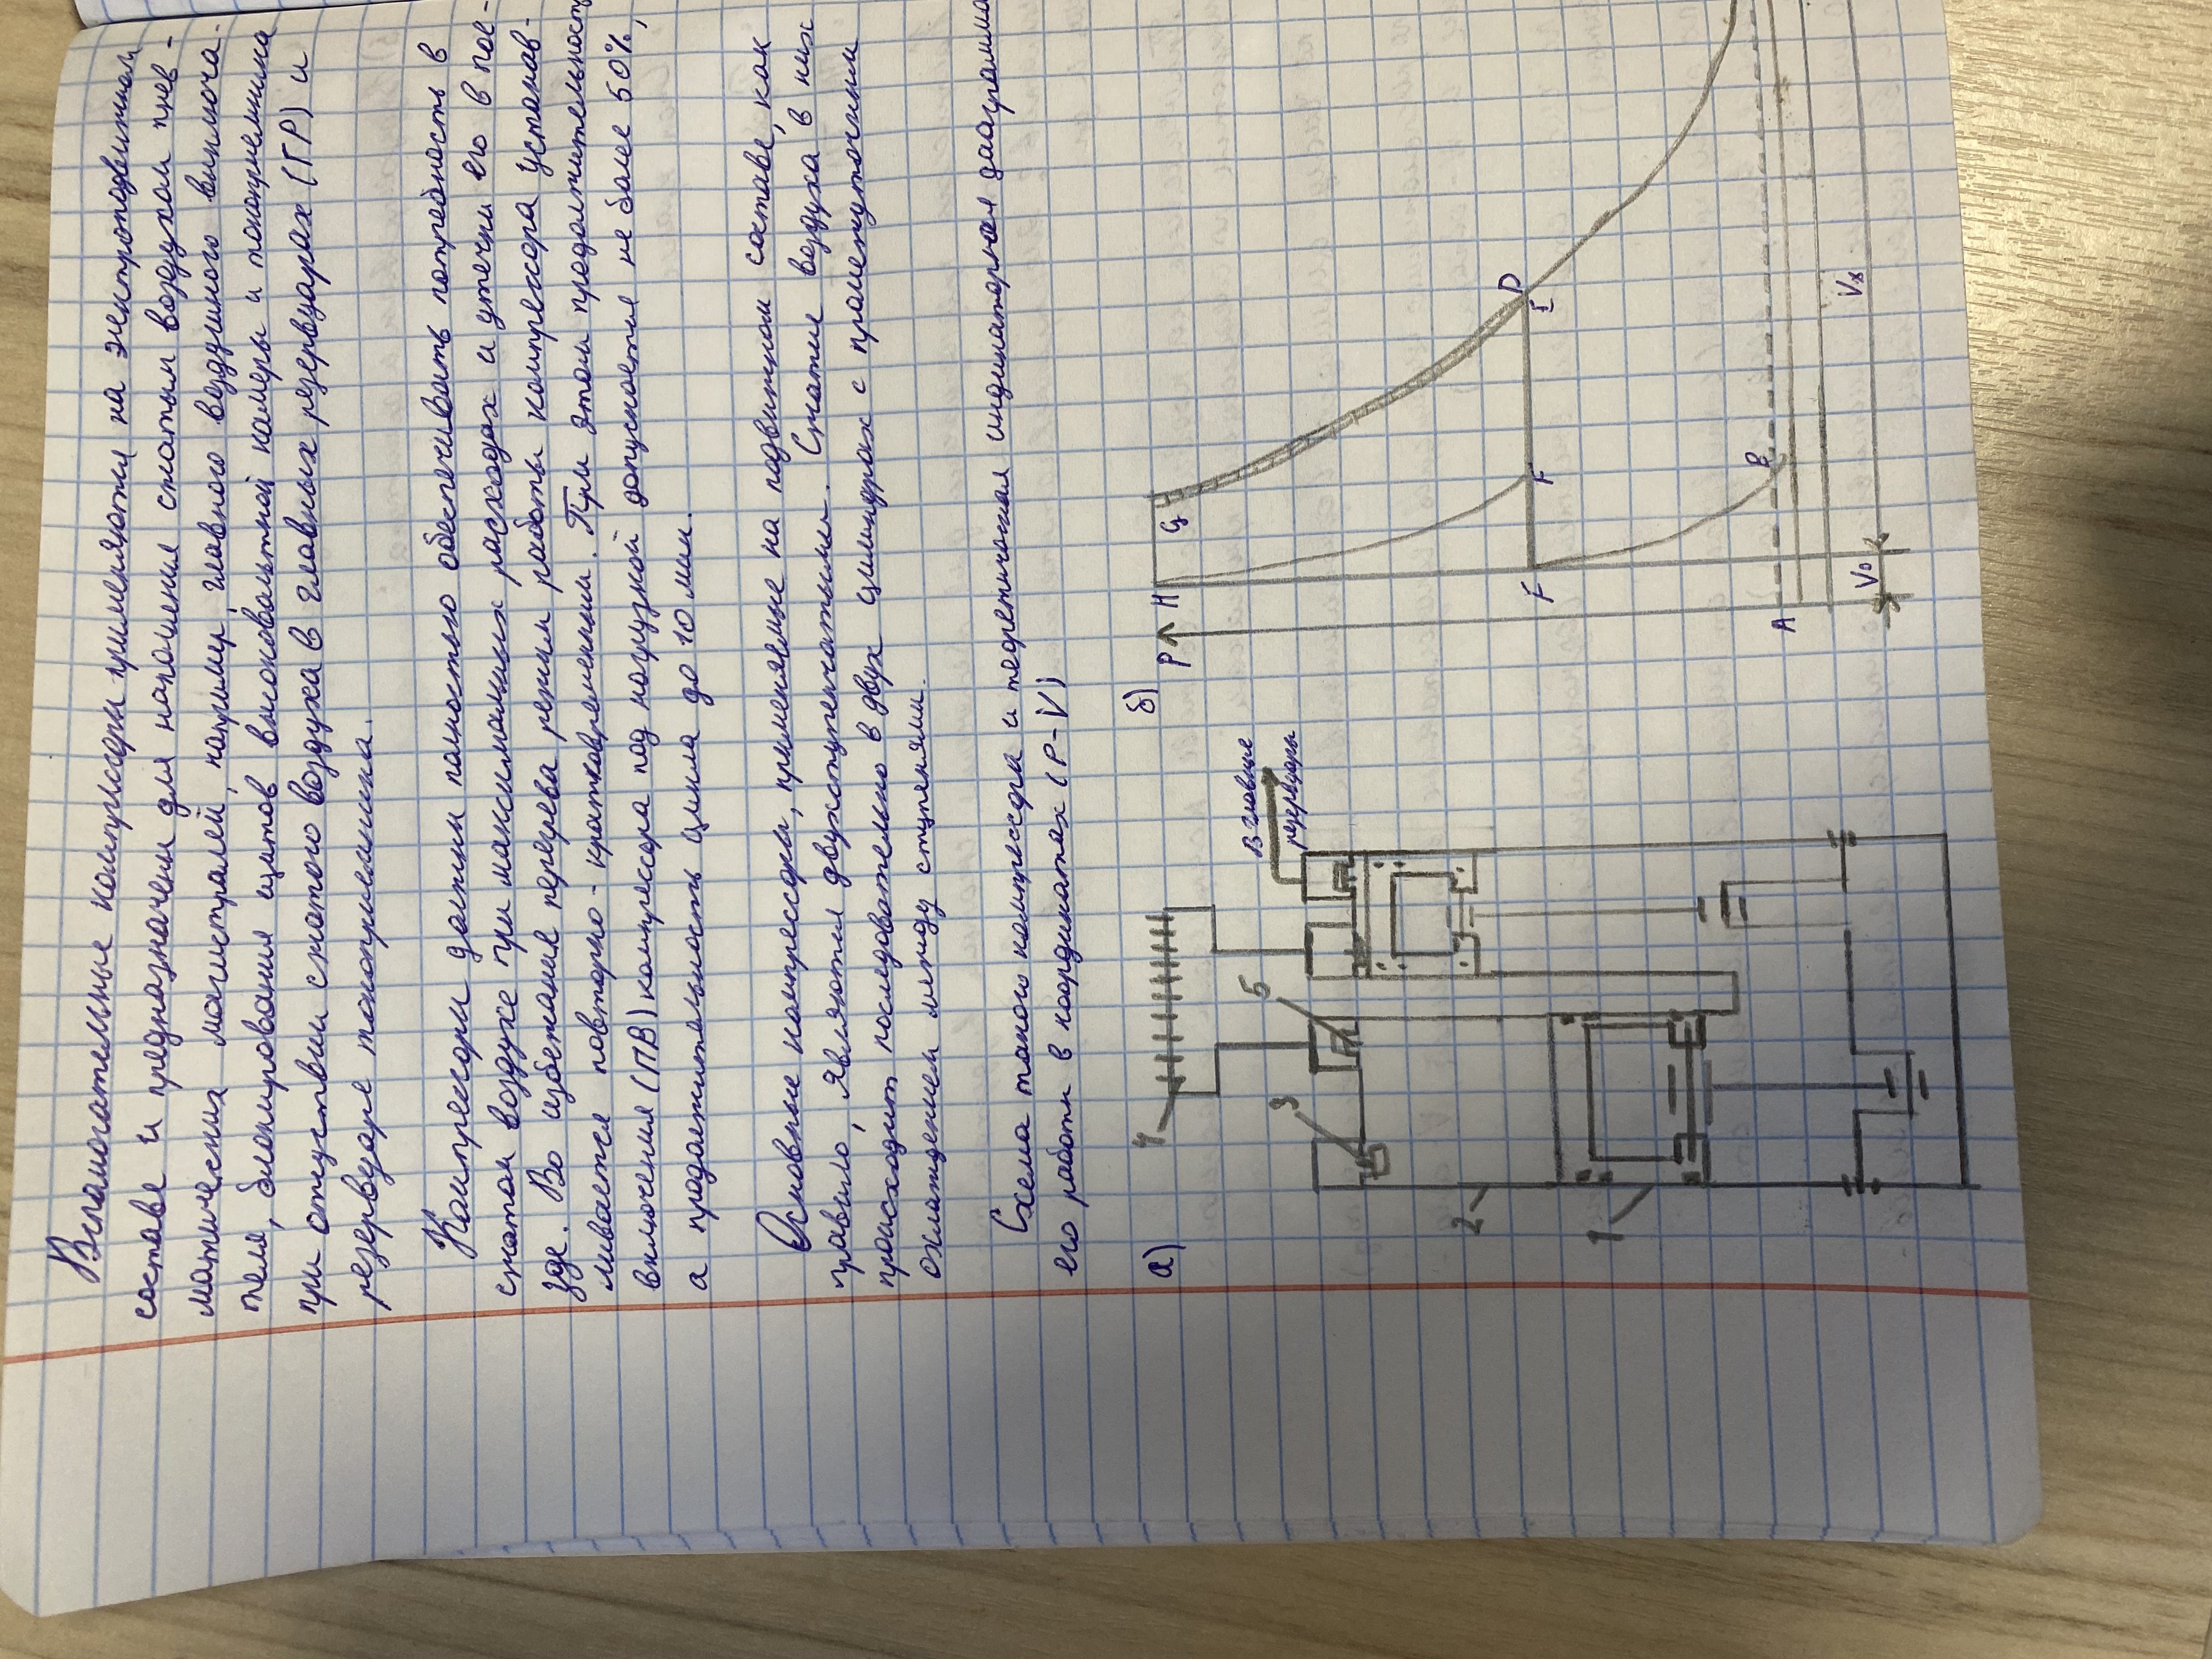 Вспомогательные компрессоры применяются на электроподвижном
составе и предназначены для наполнения сжатым воздухом пнев-
матических магистралей, например, главного воздушного выключа-
теля, блокирования щитов высоковольтной камеры и токоприемника
при отсутствии сжатого воздуха в главных резервуарах (ГР) и
резервуаре токоприемника.
Компрессоры должны полностью обеспечивать потребность в
сжатом воздухе при максимальных расходах и утечки его в пое-
зде. Во избежание перегрева режим работы компрессора устанав-
ливается повторно-кратковременным. При этом продолжительность
включения (ПВ) компрессора под нагрузкой допускается не более 50%,
а продолжительность цикла до 10 мин.
Основные компрессоры, применяемые на подвижном составе, как
правило, являются двухступенчатыми. Сжатие воздуха в них
происходит последовательно в двух цилиндрах с промежуточным
охлаждением между ступенями.
Схема такого компрессора и теоретическая индикаторная диаграмма
его работы в координатах (P-V)
а)
б)
4
3
5
2
1
В главные
резервуары
P
H
G
F
F
D
E
A
B
V₀